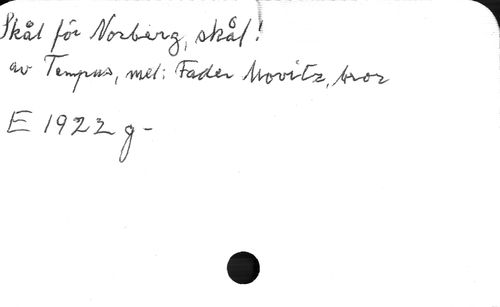 Skål för Norberg, skål!
av Tempus, mel: Fader Movitz, bror
E 1922 g-